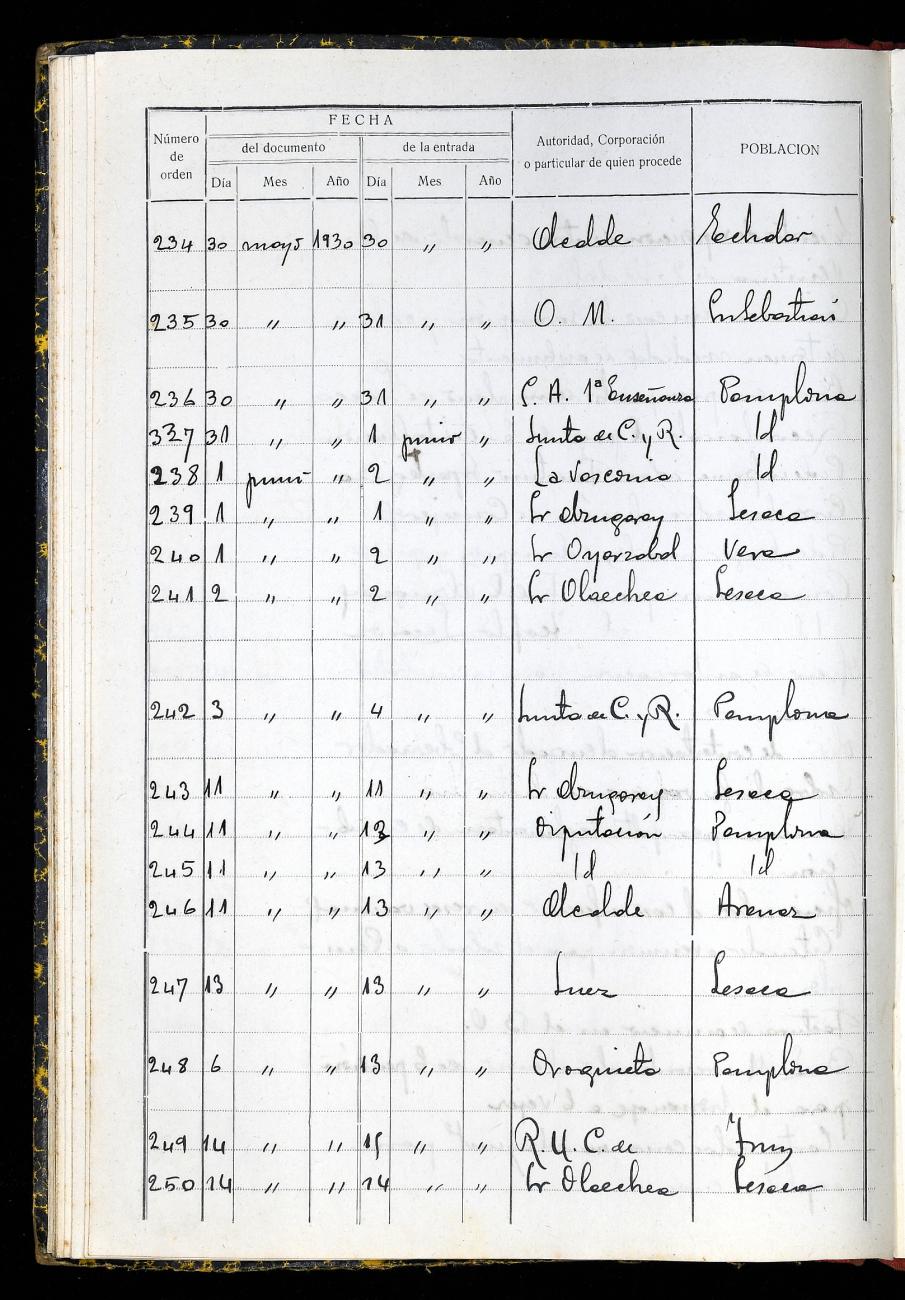 FECHA
Número de orden
del documento
de la entrada
Autoridad, Corporación o particular de quien procede
POBLACION
Día Mes Año Día Mes Año
234 30 mayo 1930 30 〃 〃 Alcalde Echalar
235 30 〃 〃 31 〃 〃 O. N. Sn Sebastián
236 30 〃 〃 31 〃 〃 S. A. 1ª Enseñanza Pamplona
337 31 〃 〃 1 junio 〃 Junta de C. y R. Id
238 1 junio 〃 2 〃 〃 La Vasconia Id
239 1 〃 〃 1 〃 〃 Sr Lesaca
240 1 〃 〃 2 〃 〃 Sr Oyarzabal Vera
241 2 〃 〃 2 〃 〃 Sr Olaechea Lesaca
242 3 〃 〃 4 〃 〃 Junta de C. y R. Pamplona
243 11 〃 〃 11 〃 〃 Sr Lesaca
244 11 〃 〃 13 〃 〃 Diputación Pamplona
245 11 〃 〃 13 〃 〃 Id Id
246 11 〃 〃 13 〃 〃 Alcalde Aranaz
247 13 〃 〃 13 〃 〃 Juez Lesaca
248 6 〃 〃 13 〃 〃 Oroquieta Pamplona
249 14 〃 〃 15 〃 〃 R. U. C. de Irun
250 14 〃 〃 14 〃 〃 Sr Olaechea Lesaca